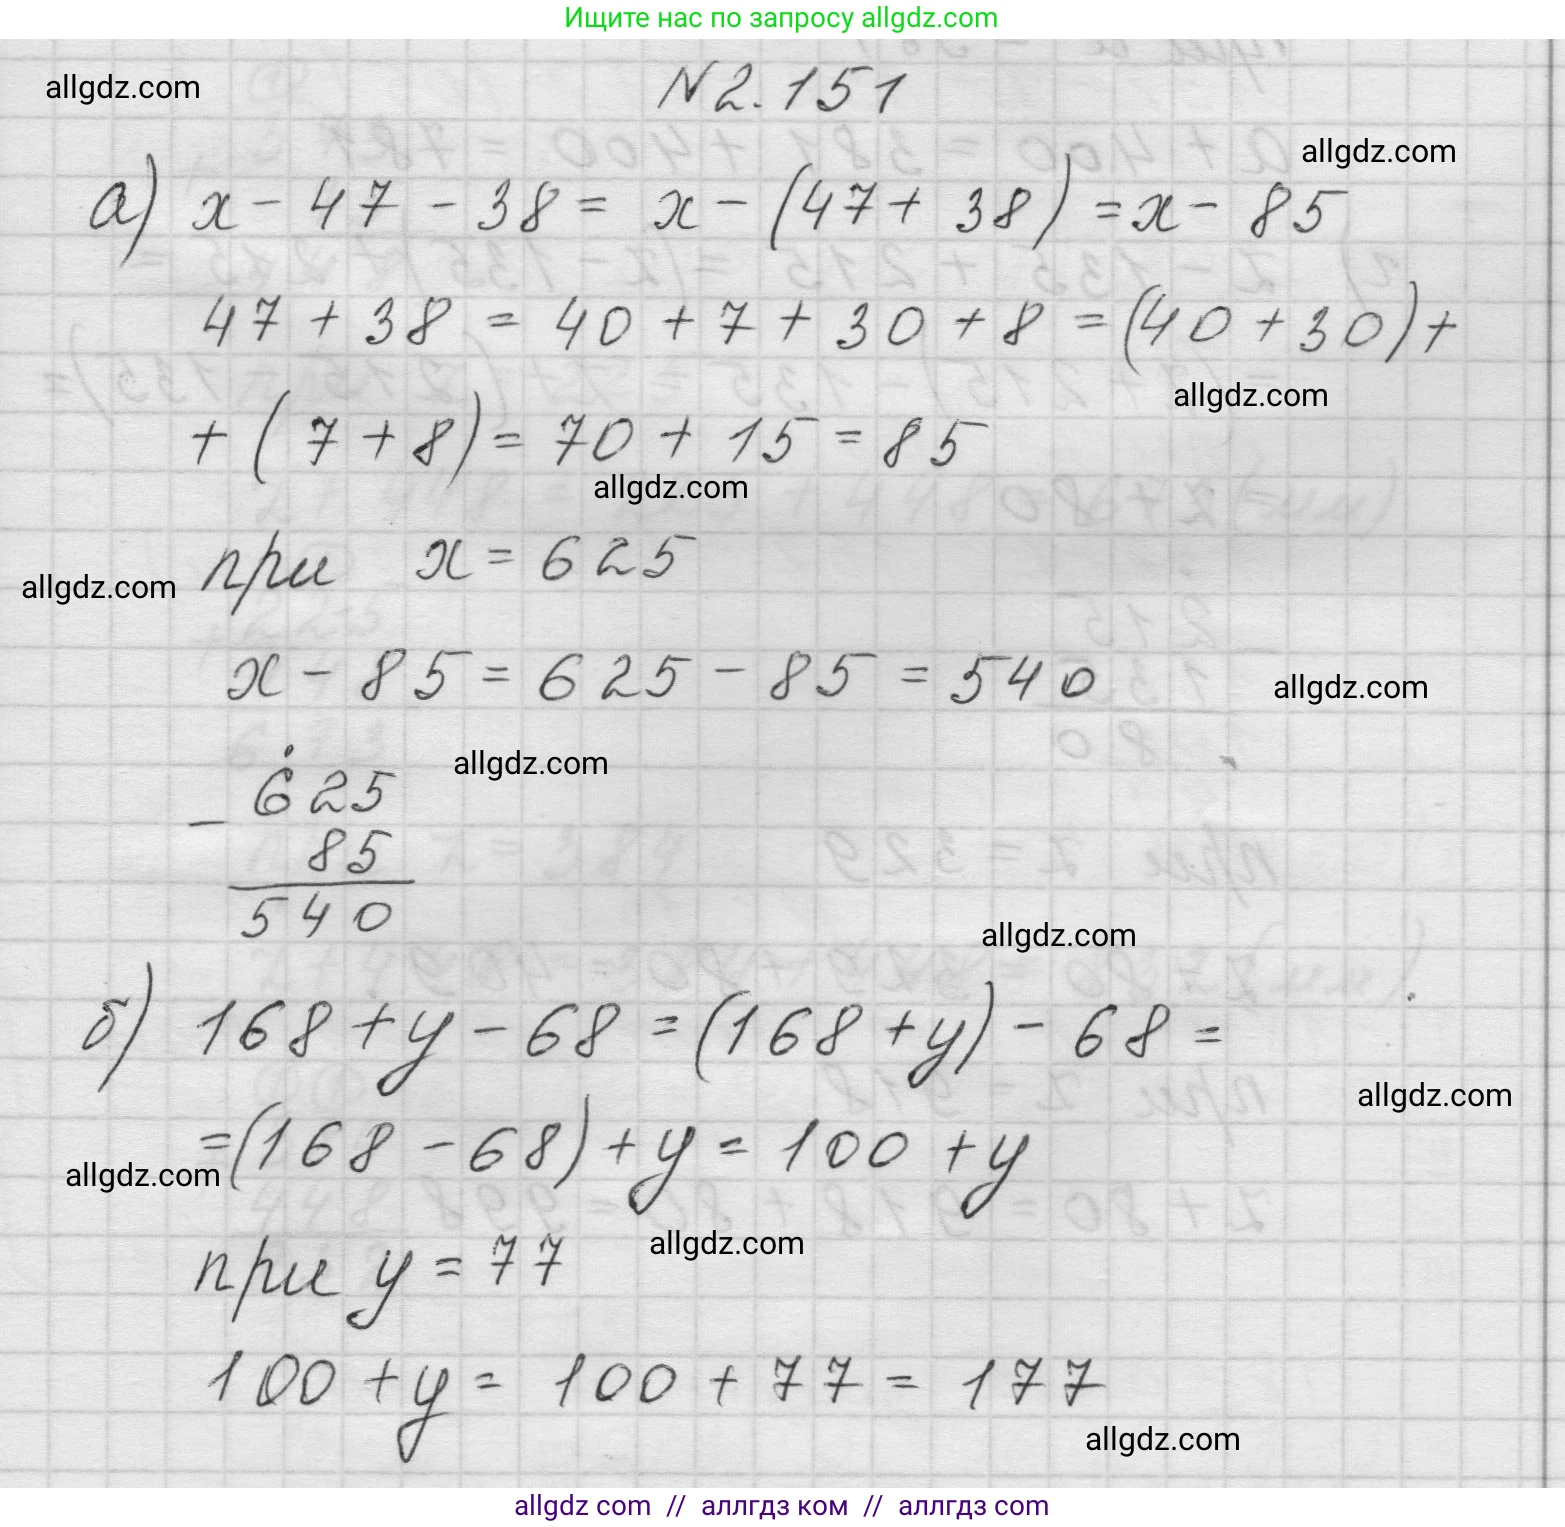 Ищите нас по запросу allgdz.com
allgdz.com
N2.151
allgdz.com
а) x - 47 - 38 = x - (47 + 38) = x - 85
47 + 38 = 40 + 7 + 30 + 8 = (40 + 30) +
allgdz.com
+ (7 + 8) = 70 + 15 = 85
allgdz.com
при x = 625
allgdz.com
x - 85 = 625 - 85 = 540
allgdz.com
allgdz.com
- 625
85
540
allgdz.com
б) 168 + y - 68 = (168 + y) - 68 =
allgdz.com
= (168 - 68) + y = 100 + y
allgdz.com
allgdz.com
при y = 77
100 + y = 100 + 77 = 177
allgdz.com
allgdz com // аллгдз ком // аллгдз com